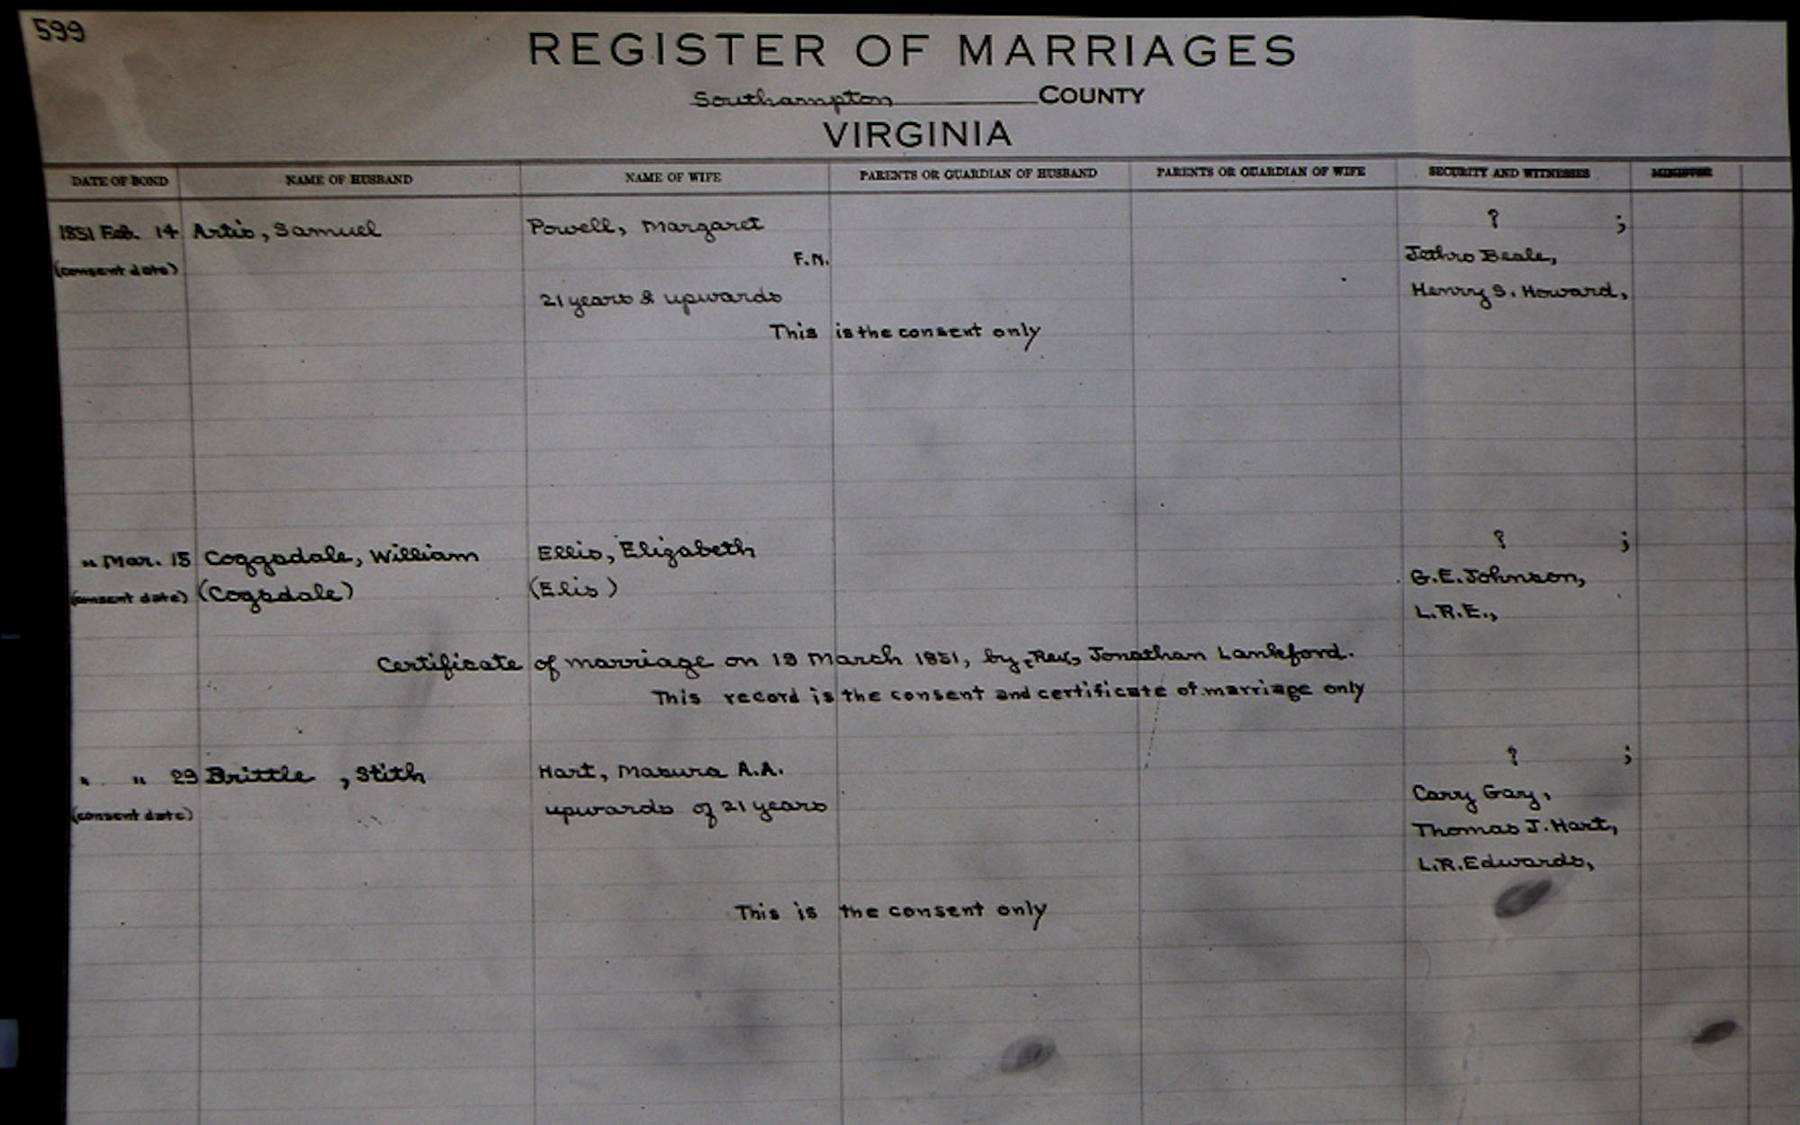 599
REGISTER OF MARRIAGES
Southampton COUNTY
VIRGINIA
DATE OF BOND NAME OF HUSBAND NAME OF WIFE PARENTS OR GUARDIAN OF HUSBAND PARENTS OR GUARDIAN OF WIFE SECURITY AND WITNESSES MINISTER
1851 Feb. 14 Artis, Samuel Powell, Margaret ? ;
(consent date) F.N. Jethro Beale,
21 years & upwards Henry S. Howard,
This is the consent only
" Mar. 15 Coggsdale, William Ellis, Elizabeth ? ;
(consent date) (Cogsdale) (Elis) G.E. Johnson,
L.R.E.,
Certificate of marriage on 19 March 1851, by, Rev, Jonathan Lankford.
This record is the consent and certificate of marriage only
" " 29 Brittle , Stith Hart, Masura A.A. ? ;
(consent date) upwards of 21 years Cary Gay,
Thomas J. Hart,
L.R. Edwards,
This is the consent only